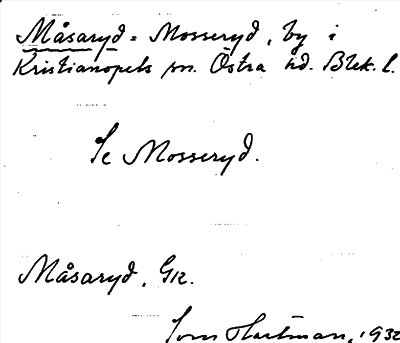 Måsaryd = Mosseryd, by i
Kristianopels sn. Östra hd. Blek. l.
Se Mosseryd.
Måsaryd, GK.
Hartman, 1932